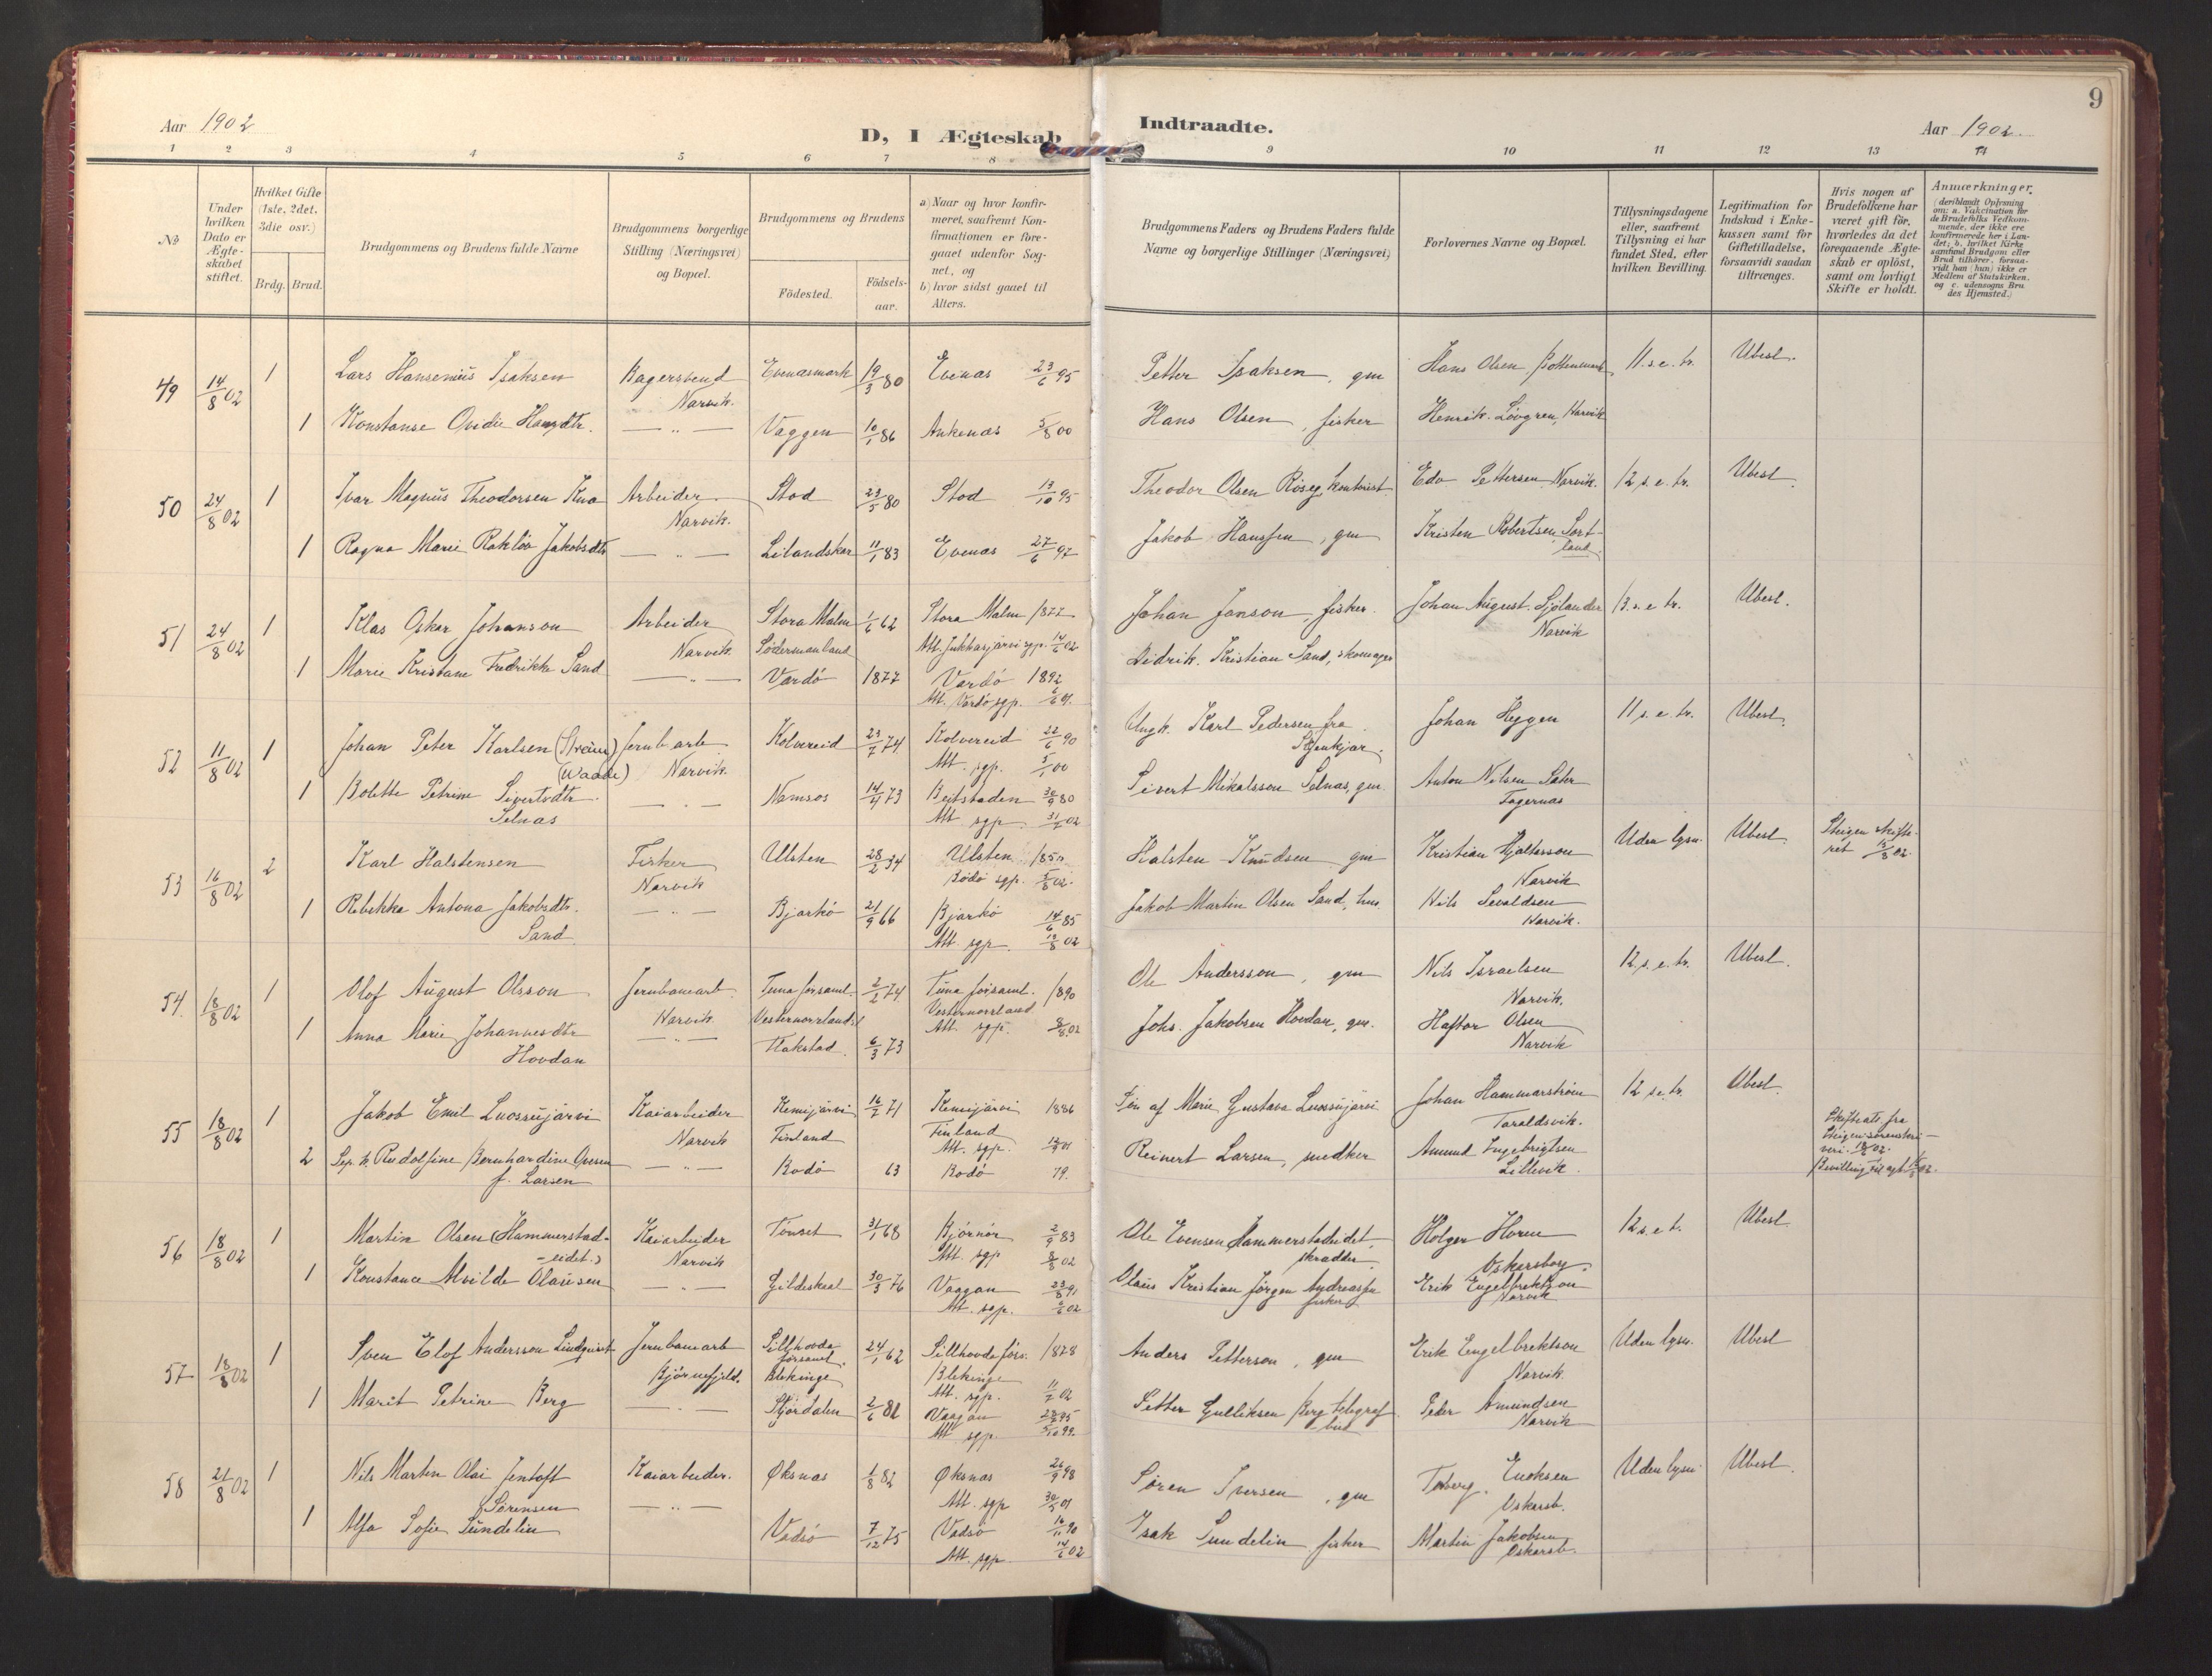 9
Aar 1902
D, I Ægteskab
Indtraadte.
Aar 1902.
1 2 3 4 5 6 7 8 9 10 11 12 13 14
No
Under hvilken Dato er Ægteskabet stiftet.
Hvilket Gifte (1ste, 2det, 3die osv.)
Brdg. Brud.
Brudgommens og Brudens fulde Navne
Brudgommens borgerlige Stilling (Næringsvei) og Bopæl.
Brudgommens og Brudens
Födested.
Födselsaar.
a) Naar og hvor konfirmeret, saafremt Konfirmationen er foregaaet udenfor Sognet, og
b) hvor sidst gaaet til Alters.
Brudgommens Faders og Brudens Faders fulde Navne og borgerlige Stillinger (Næringsvei)
Forlovernes Navne og Bopæl.
Tillysningsdagene eller, saafremt Tillysning ei har fundet Sted, efter hvilken Bevilling.
Legitimation for Indskud i Enkekassen samt for Giftetilladelse, forsaavidt saadan tiltrænges.
Hvis nogen af Brudefolkene har været gift för, hvorledes da det foregaaende Ægteskab er oplöst, samt om lovligt Skifte er holdt.
Anmærkninger.
(deriblandt Oplysning om: a. Vakcination for de Brudefolks Vedkommende, der ikke ere konfirmerede her i Landet; b. hvilket Kirkesamfund Brudgom eller Brud tilhörer, forsaavidt han (hun) ikke er Medlem af Statskirken, og c. udensogns Brudes Hjemsted.)
49 14/8 02 1 Lars Hansenius Isaksen Bagersvend Evenæsmark 19/3 80 Evenæs 23/6 95 Petter Isaksen, gm Hans Olsen, 11. s. e. tr. Ubesl.
Narvik.
1 Konstanse Ovidie Hansdtr. — " — Vaggen 10/1 86 Ankenæs 5/8 00 Hans Olsen, fisker Henrik Løvgren, Narvik
50 24/8 02 1 Ivar Magnus Theodorsen Arbeider Stod 23/5 80 Stod 13/10 95 Theodor Olsen kontorist Edv Pettersen Narvik. 12 s. e. tr. Ubesl.
Narvik.
1 Ragna Marie Jakobsdtr — " — 11/1 83 Evenæs 27/6 97 Jakob Hanssen, gm Kristen Robertsen Sortland.
51 24/8 02 1 Klas Oskar Johanson Arbeider Stora Malm 1/6 62 Stora Malm 1877 Johan Janson, fisker. Johan August Sjölander 13. s. e tr. Ubesl.
Narvik. Södermanland Att. Jukkasjärvi sgp. 14/6 02 Narvik
1 Marie Kristane Fredrikke Sand — " — Vardö 1877 Vardö 1892 Didrik Kristian Sand, skomager
Att. Vardö sgp. 6/6 01.
52 11/8 02 1 Johan Peter Karlsen Jernb arb Kolvereid 23/7 74 Kolvereid 22/6 90 Ungk. Karl Pedersen fra Johan Heggen 11 s. e. tr. Ubesl.
(Waade) Narvik. Att. sgp. 5/1 00
1 Bolette Petrine Sivertsdtr. — " — Namsos 73 Beitstaden 80 Sivert Mikalsson Selnæs, gm. Anton Nilsen
Selnæs Att. sgp. 02 Fagernæs
53 16/8 02 2 Karl Halstensen Fisker Ulsten 28/2 34 Ulsten Halsten Knudsen gm Kristian Hjaltesson Uden lysn. Ubesl. Steigen skifteret 02.
Narvik Bodö sgp. 5/8 02. Narvik
1 Rebekka Antona Jakobsdtr. — " — Bjarkö 21/9 66 Bjarkö 14/6 85 Jakob Martin Olsen Sand, hus. Nils Sevaldsen
Sand Att. sgp. 13/8 02 Narvik.
54. 18/8 02 1 Olof August Olsson Jernbanearb. Tuna forsaml. 2/2 74 Tuna forsaml. 1890 Ole Andersson, gm Nils Israelsen 12 s. e. tr. Ubesl.
Narvik Vesternorrland Vesternorrland Narvik.
Att. sgp. 8/8 02
1 Anna Marie Johannesdtr — " — Flakstad. 6/3 73 Johs. Jakobsen Hovdan, gm. Haftor Olsen
Hovdan Narvik
55 18/8 02 1 Jakob Emil Luossujärvi Kaiarbeider Kemijärvi 16/2 71 Kemijärvi 1886 Søn af Marie Gustava Luossujärvi Johan Hammarstrøm 12 s. e. tr. Ubesl
Narvik Finland Finland Taraldsvik.
Att. sgp. 01
2 Sep. k. Rudolfine Bernhardine Ovesen — " — Bodö 63 Bodö 79. Reinert Larsen, snedker Amund Ingebrigtsen Skifteats fra Steigen sorenskriveri. 02.
f. Larsen Lillevik Bevilling til egt 02.
56 18/8 02 1 Martin Olsen (Hammerstad- Kaiarbeider Tönset 31/1 68 Bjørnør 2/9 83 Ole Evensen Hammerstadeidet, Holger Horen 12 s. e. t. Ubesl.
-eidet.) Narvik Att. sgp 8/8 02 skrædder. Oskarsborg.
1 Konstance Alvilde Olausen — " — Gildeskaal 30/3 76 Vaagan 23/8 91 Olaus Kristian Jørgen Andreassen Erik Engelbrektson
Att. sgp. 02 fisker Narvik
57 18/8 02 1 Sven Elof Andersson Lindqvist Jernbanearb Sillhovda 24/1 62 Sillhovda förs. 1878 Anders Petterson, gm Erik Engelbrektson Uden lysn. Ubesl
Bjørnefjeld. församl. Blekinge Blekinge Narvik.
Att. sgp. 02
1 Marit Petrine Berg — " — Stjørdalen 2/6 82 Vaagan 95 Petter Gulliksen Berg telegraf- Peder Amundsen
Att sgp. 5/10 99. bud Narvik
58 21/8 02 1 Nils Martin Olai Jentoft Kaiarbeider. Øksnæs 1/8 82 Øksnæs 98 Søren Iversen, gm Torberg. Enoksen Uden lysn. Ubesl.
Sørensen Att. sgp 01 Oskarsb.
1 Alfa Sofie Sundelin — " — Vadsø 7/12 75 Vadsø 16/11 90 Isak Sundelin fisker Martin Jakobsen
Att. sgp. 14/6 02 Oskarsb.